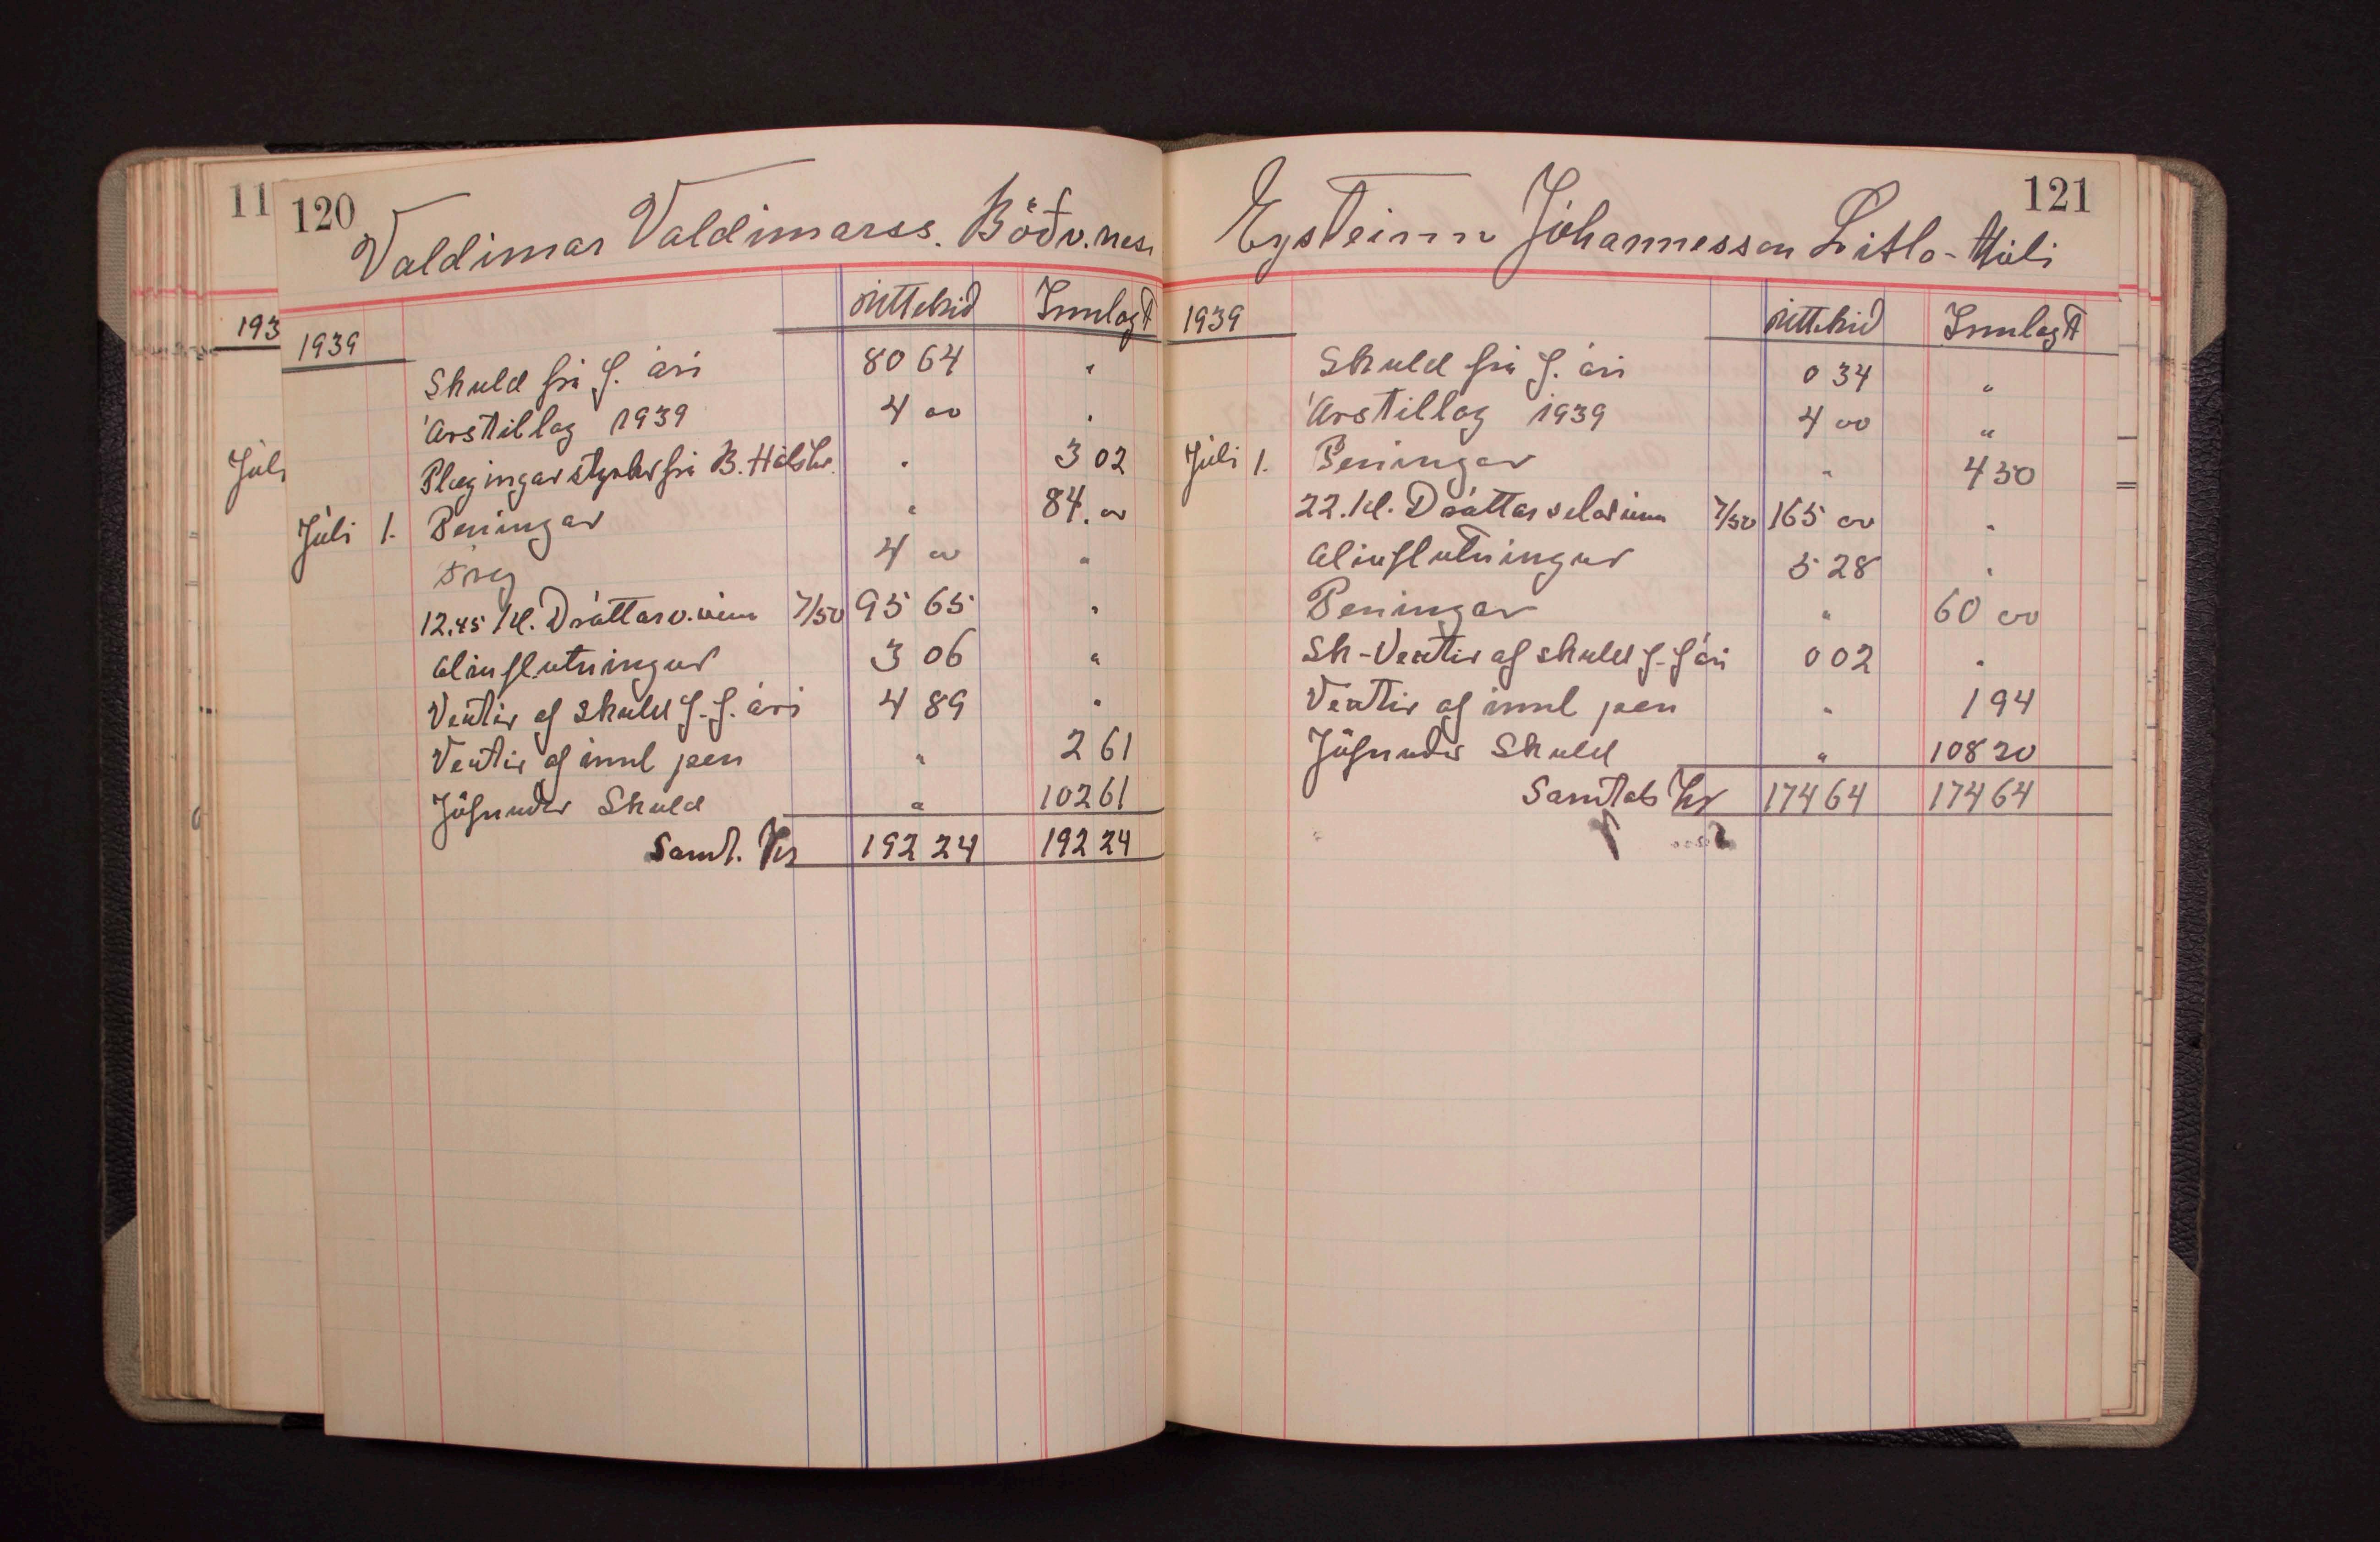 11
193
Júlí
120
Valdimar Valdimarss. Böðv.nesi
Úttekið Innlagt
1939
Skuld frá f. ári 80 64 "
Árstillag 1939 4 00 "
Plægingarstyrkur frá B. Hálshr. " 3 02
Júlí 1. Peningar " 84.00
4 00 "
12.45 kl. Dráttarv.vinna 7/50 95 65 "
Olíuflutningur 3 06 "
Vextir af skuld f. f. ári 4 89 "
Vextir af innl pen " 2 61
Jöfnuður Skuld " 102 61
Samt. Kr 192 24 192 24
121
Eysteinn Jóhannesson Litlo-Múli
1939 Úttekið Innlagt
Skuld frá f. ári 0 34 "
Árstillag 1939 4 00 "
Júlí 1. Peningar " 4 50
22. kl. Dráttarvélavinna 7/50 165 00 "
Olíuflutningur 5 28 "
Peningar " 60 00
Sk-Vextir af skuld f. f ári 0 02 "
Vextir af innl pen " 1 94
Jöfnuður Skuld " 108 20
Samtals Kr 174 64 174 64